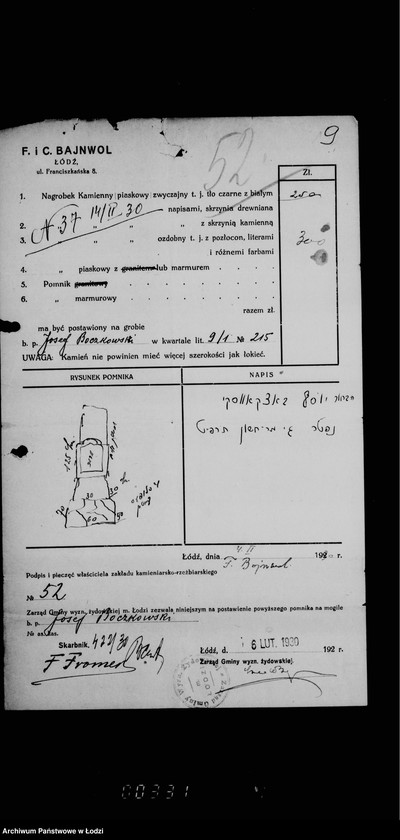 9
52
F. i C. BAJNWOL
ŁÓDŹ,
ul. Franciszkańska 8.
Zł.
1. Nagrobek Kamienny (piaskowy) zwyczajny t. j. tło czarne z białym
napisami, skrzynia drewniana
250
2. „ „ „ z skrzynią kamienną
N 37 14/II 30
3. „ „ ozdobny t. j. z pozłocon. literami
i różnemi farbami
300
4. „ piaskowy z granitem lub marmurem
5. Pomnik granitowy
6. „ marmurowy
razem zł.
ma być postawiony na grobie
b. p. Josef Boczkowski w kwartale lit. 9/1 № 215
UWAGA: Kamień nie powinien mieć więcej szerokości jak łokieć.
RYSUNEK POMNIKA
NAPIS
יוסף באצקאווסקי
נפטר ג' מרחשון תרפ״ט
30
60
Łódź, dnia 4 II 192 r.
F. Bajnwol
Podpis i pieczęć właściciela zakładu kamieniarsko-rzeźbiarskiego
№ 52
Zarząd Gminy wyzn. żydowskiej m. Łodzi zezwala niniejszym na postawienie powyższego pomnika na mogile
b. p. Josef Boczkowski
№ as. kas.
Skarbnik 422/30
F Fromer
Łódź, d. 6 LUT 1930 192 r.
Zarząd Gminy wyzn. żydowskiej.
00331
Archiwum Państwowe w Łodzi